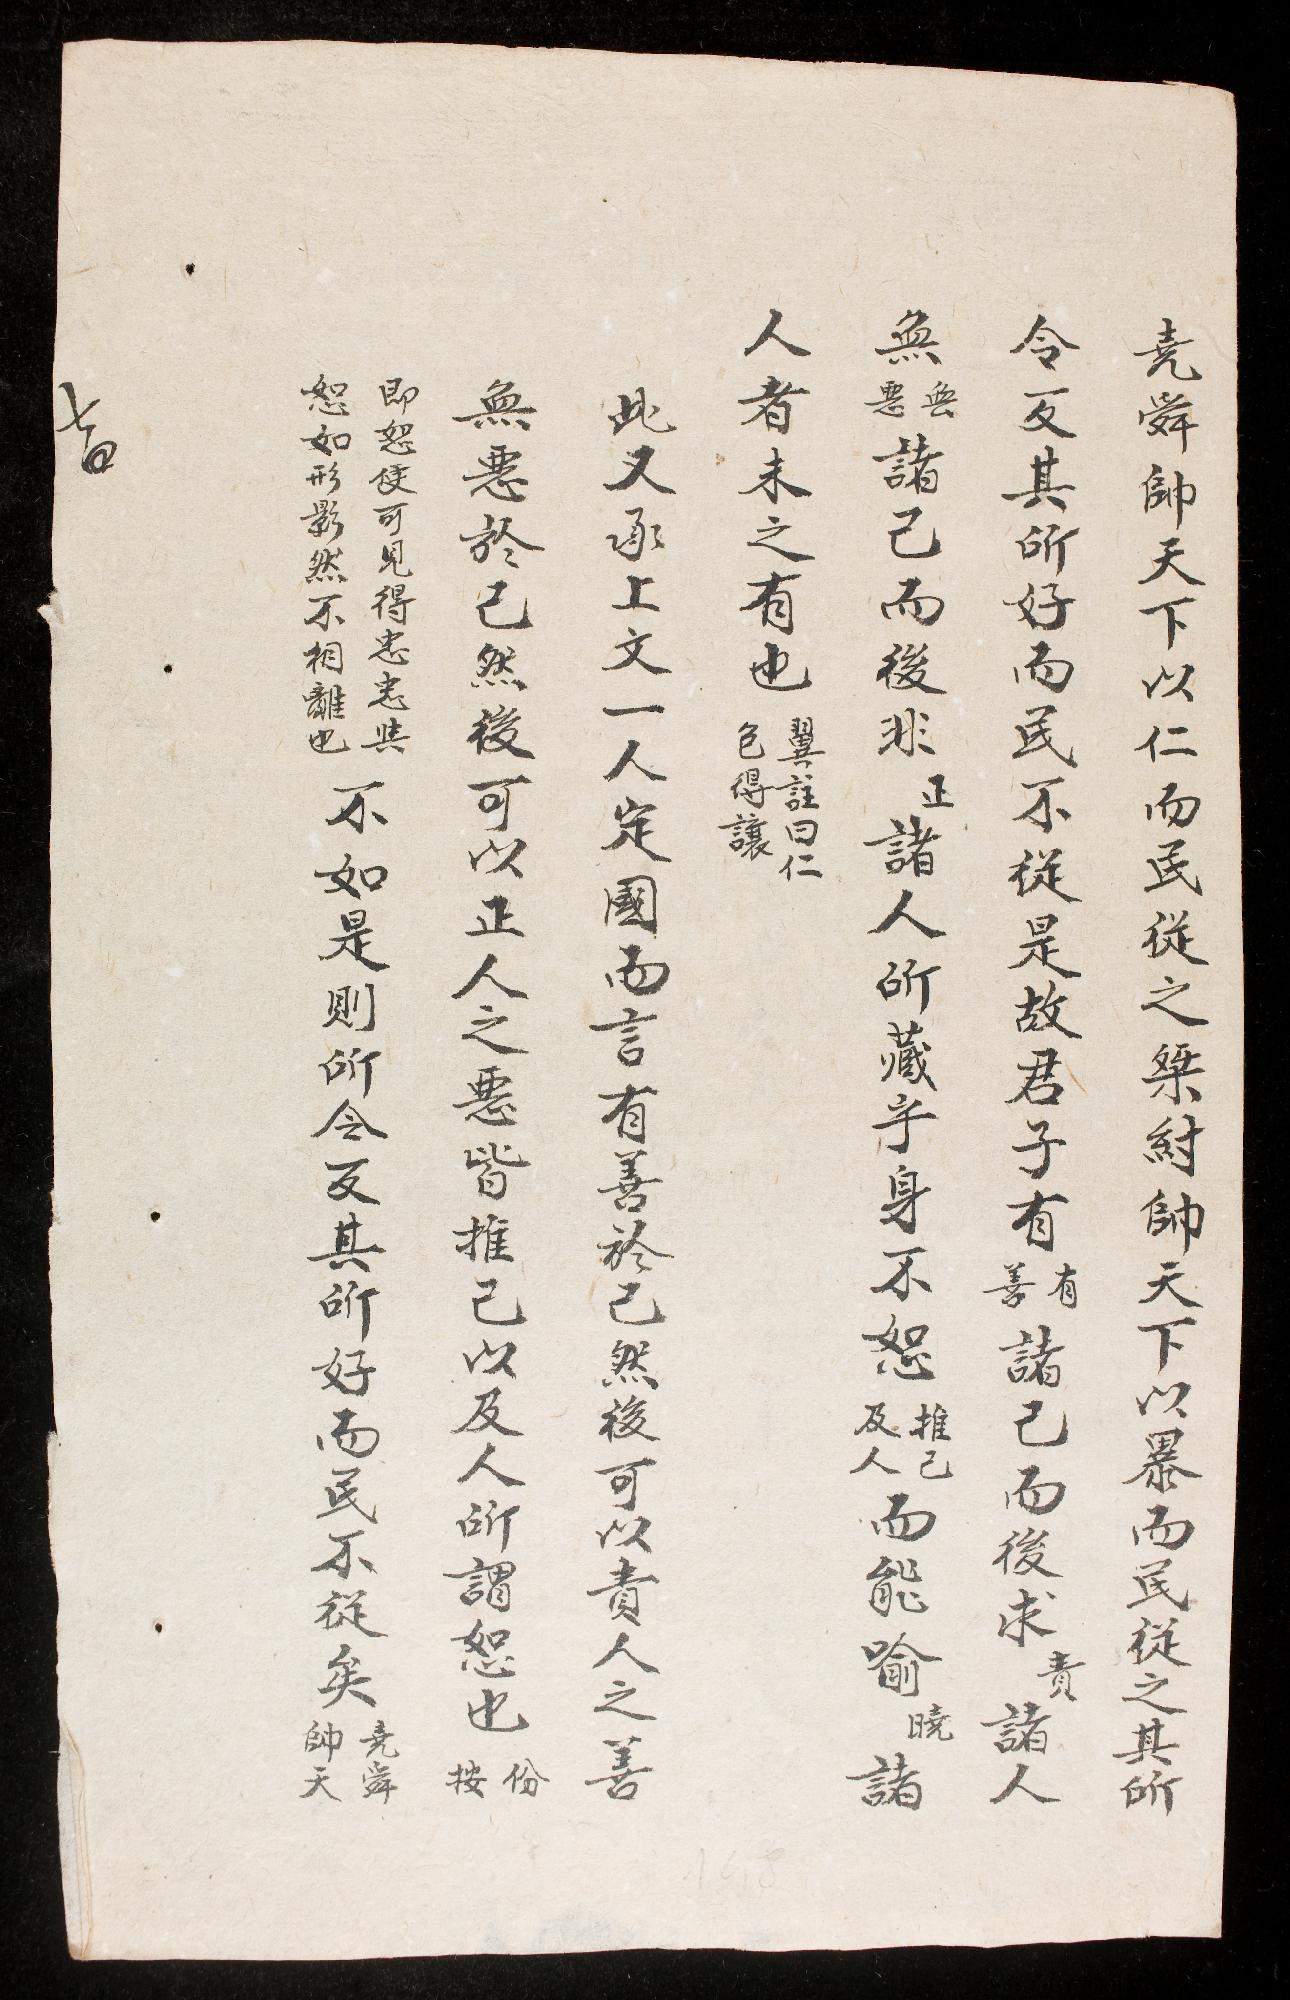 堯舜帥天下以仁而民從之桀紂帥天下以暴而民從之其所
令反其所好而民不從是故君子有有善諸己而後求責諸人
無無惡諸己而後非正諸人所藏乎身不恕推己及人而能喻曉諸
人者未之有也翼註曰仁色得讓
此又承上文一人定國而言有善於己然後可以責人之善
無惡於己然後可以正人之惡皆推己以及人所謂恕也份按
即恕便可見得忠忠與恕如形影然不相離也不如是則所令反其所好而民不從矣堯舜帥天